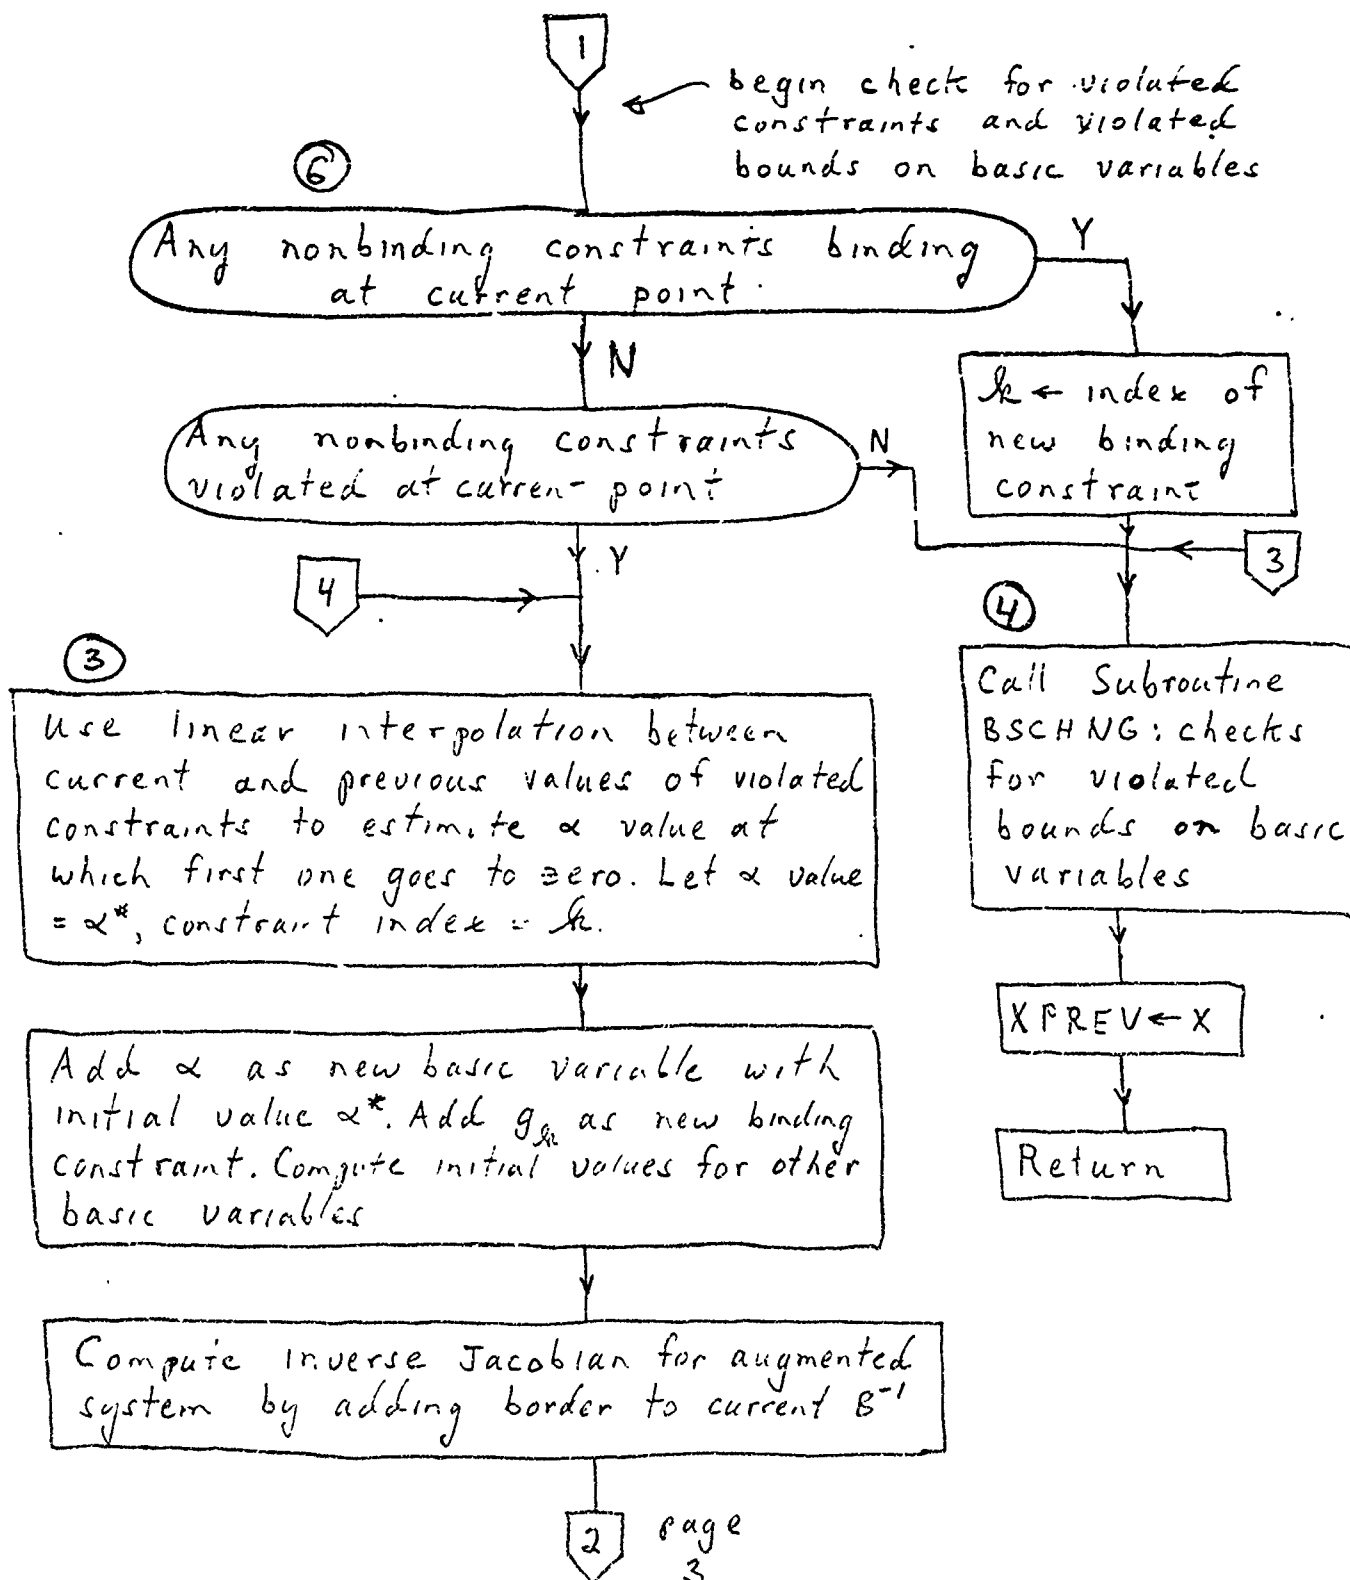 1
begin check for violated
constraints and violated
bounds on basic variables
6
Any nonbinding constraints binding
at current point.
Y
N
k ← index of
new binding
constraint
Any nonbinding constraints
violated at current point
N
Y
3
4
4
Call Subroutine
BSCHNG: checks
for violated
bounds on basic
variables
3
Use linear interpolation between
current and previous values of violated
constraints to estimate α value at
which first one goes to zero. Let α value
= α*, constraint index = k.
XPREV ← X
Add α as new basic variable with
initial value α*. Add gk as new binding
constraint. Compute initial values for other
basic variables
Return
Compute inverse Jacobian for augmented
system by adding border to current B⁻¹
2
page
3